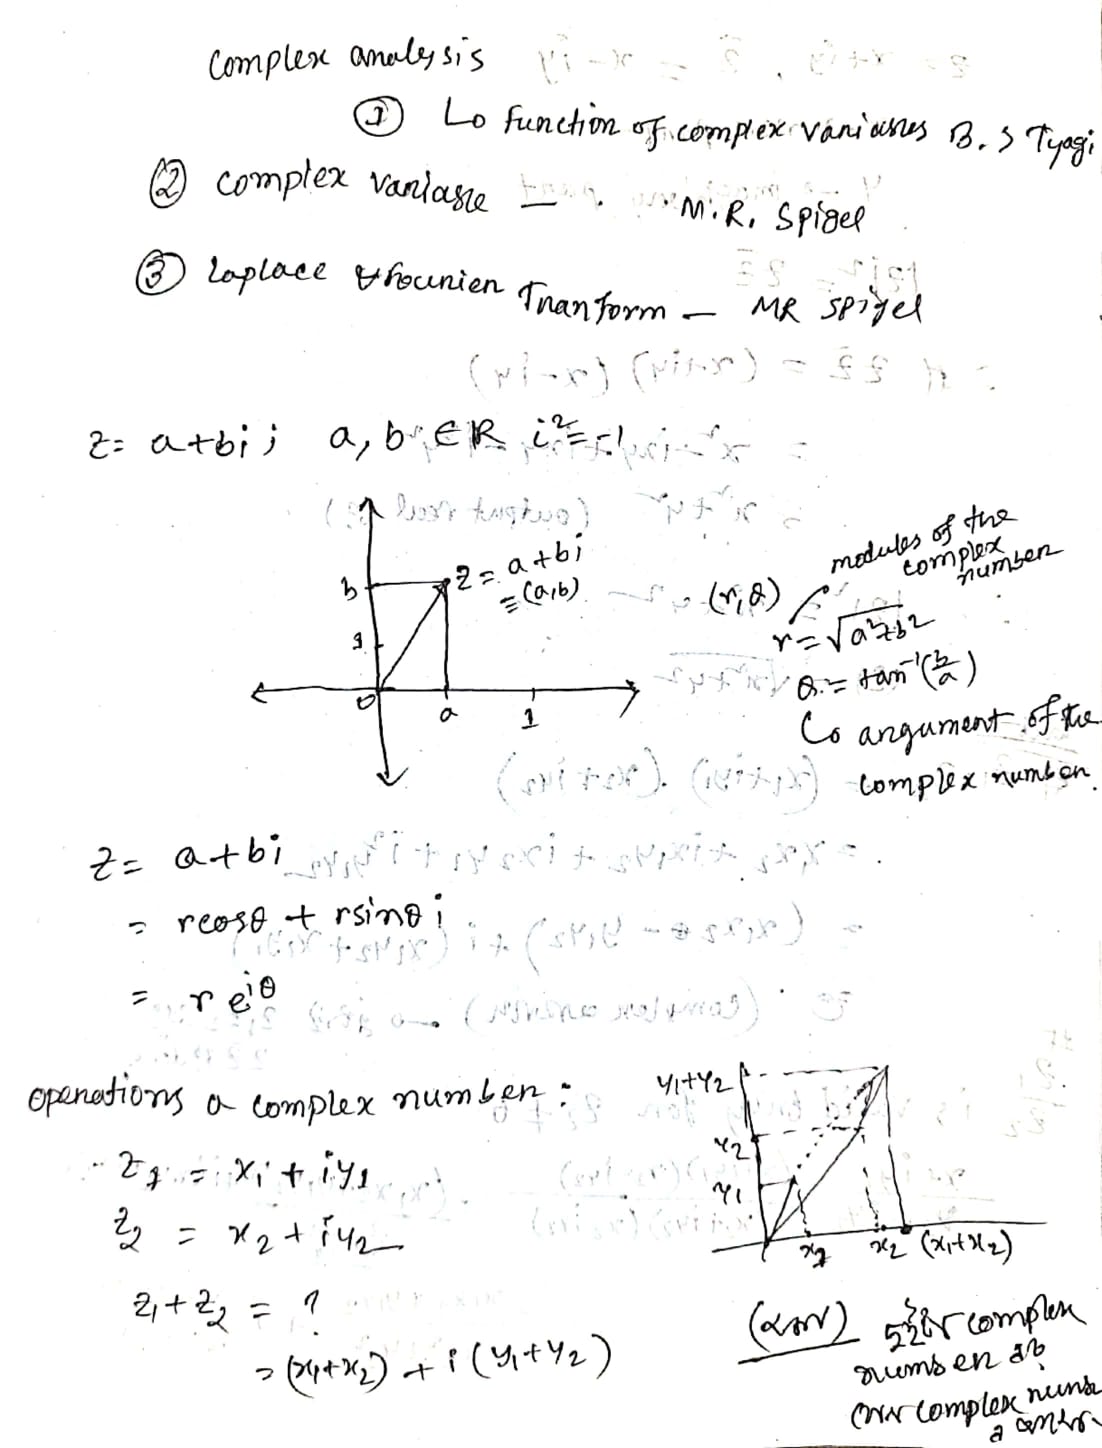 complex analysis
① Lo Function of complex variables B. S Tyagi
② complex variable — M.R. Spigel
③ Laplace & Fourier Tranform — MR Spigel
z = a+bi ; a, b ∈ R i² = -1
z = a+bi
≡ (a,b)
b
1
0
a
1
(r, θ)
modules of the
complex
number
r = √a²+b²
θ = tan⁻¹(b/a)
argument of the
complex number.
z = a+bi
= rcosθ + rsinθ i
= r e^iθ
operations a complex number :
z₁ = x₁ + iy₁
z₂ = x₂ + iy₂
z₁ + z₂ = ?
= (x₁+x₂) + i (y₁+y₂)
y₁+y₂
y₂
y₁
x₁
x₂
(x₁+x₂)
complex
number
complex